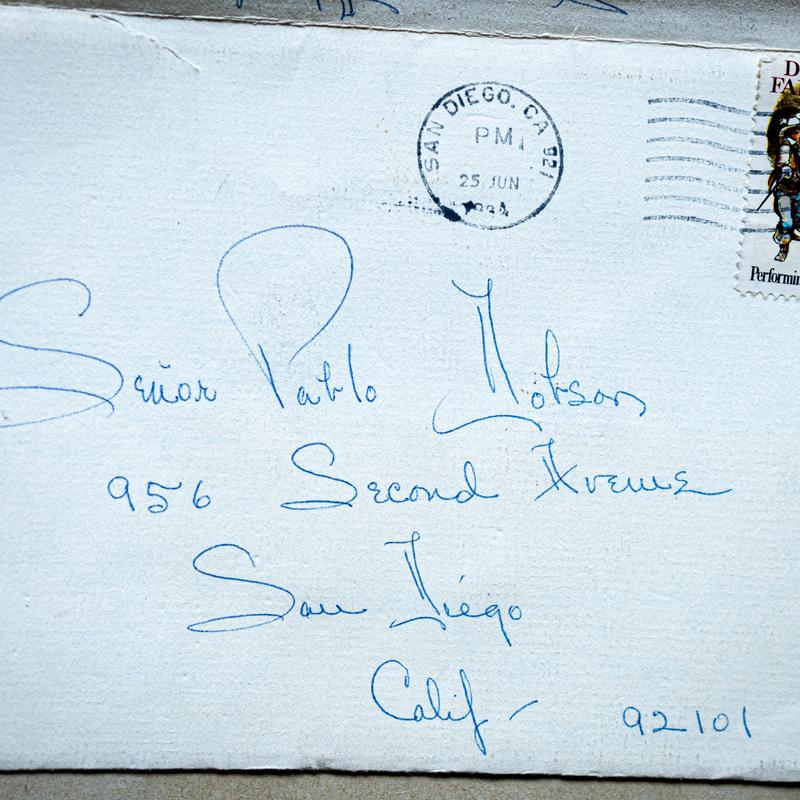 SAN DIEGO, CA 921
PM
25 JUN
D
FA
Performin
Señor Pablo
956 Second Avenue
San Diego
Calif -
92101